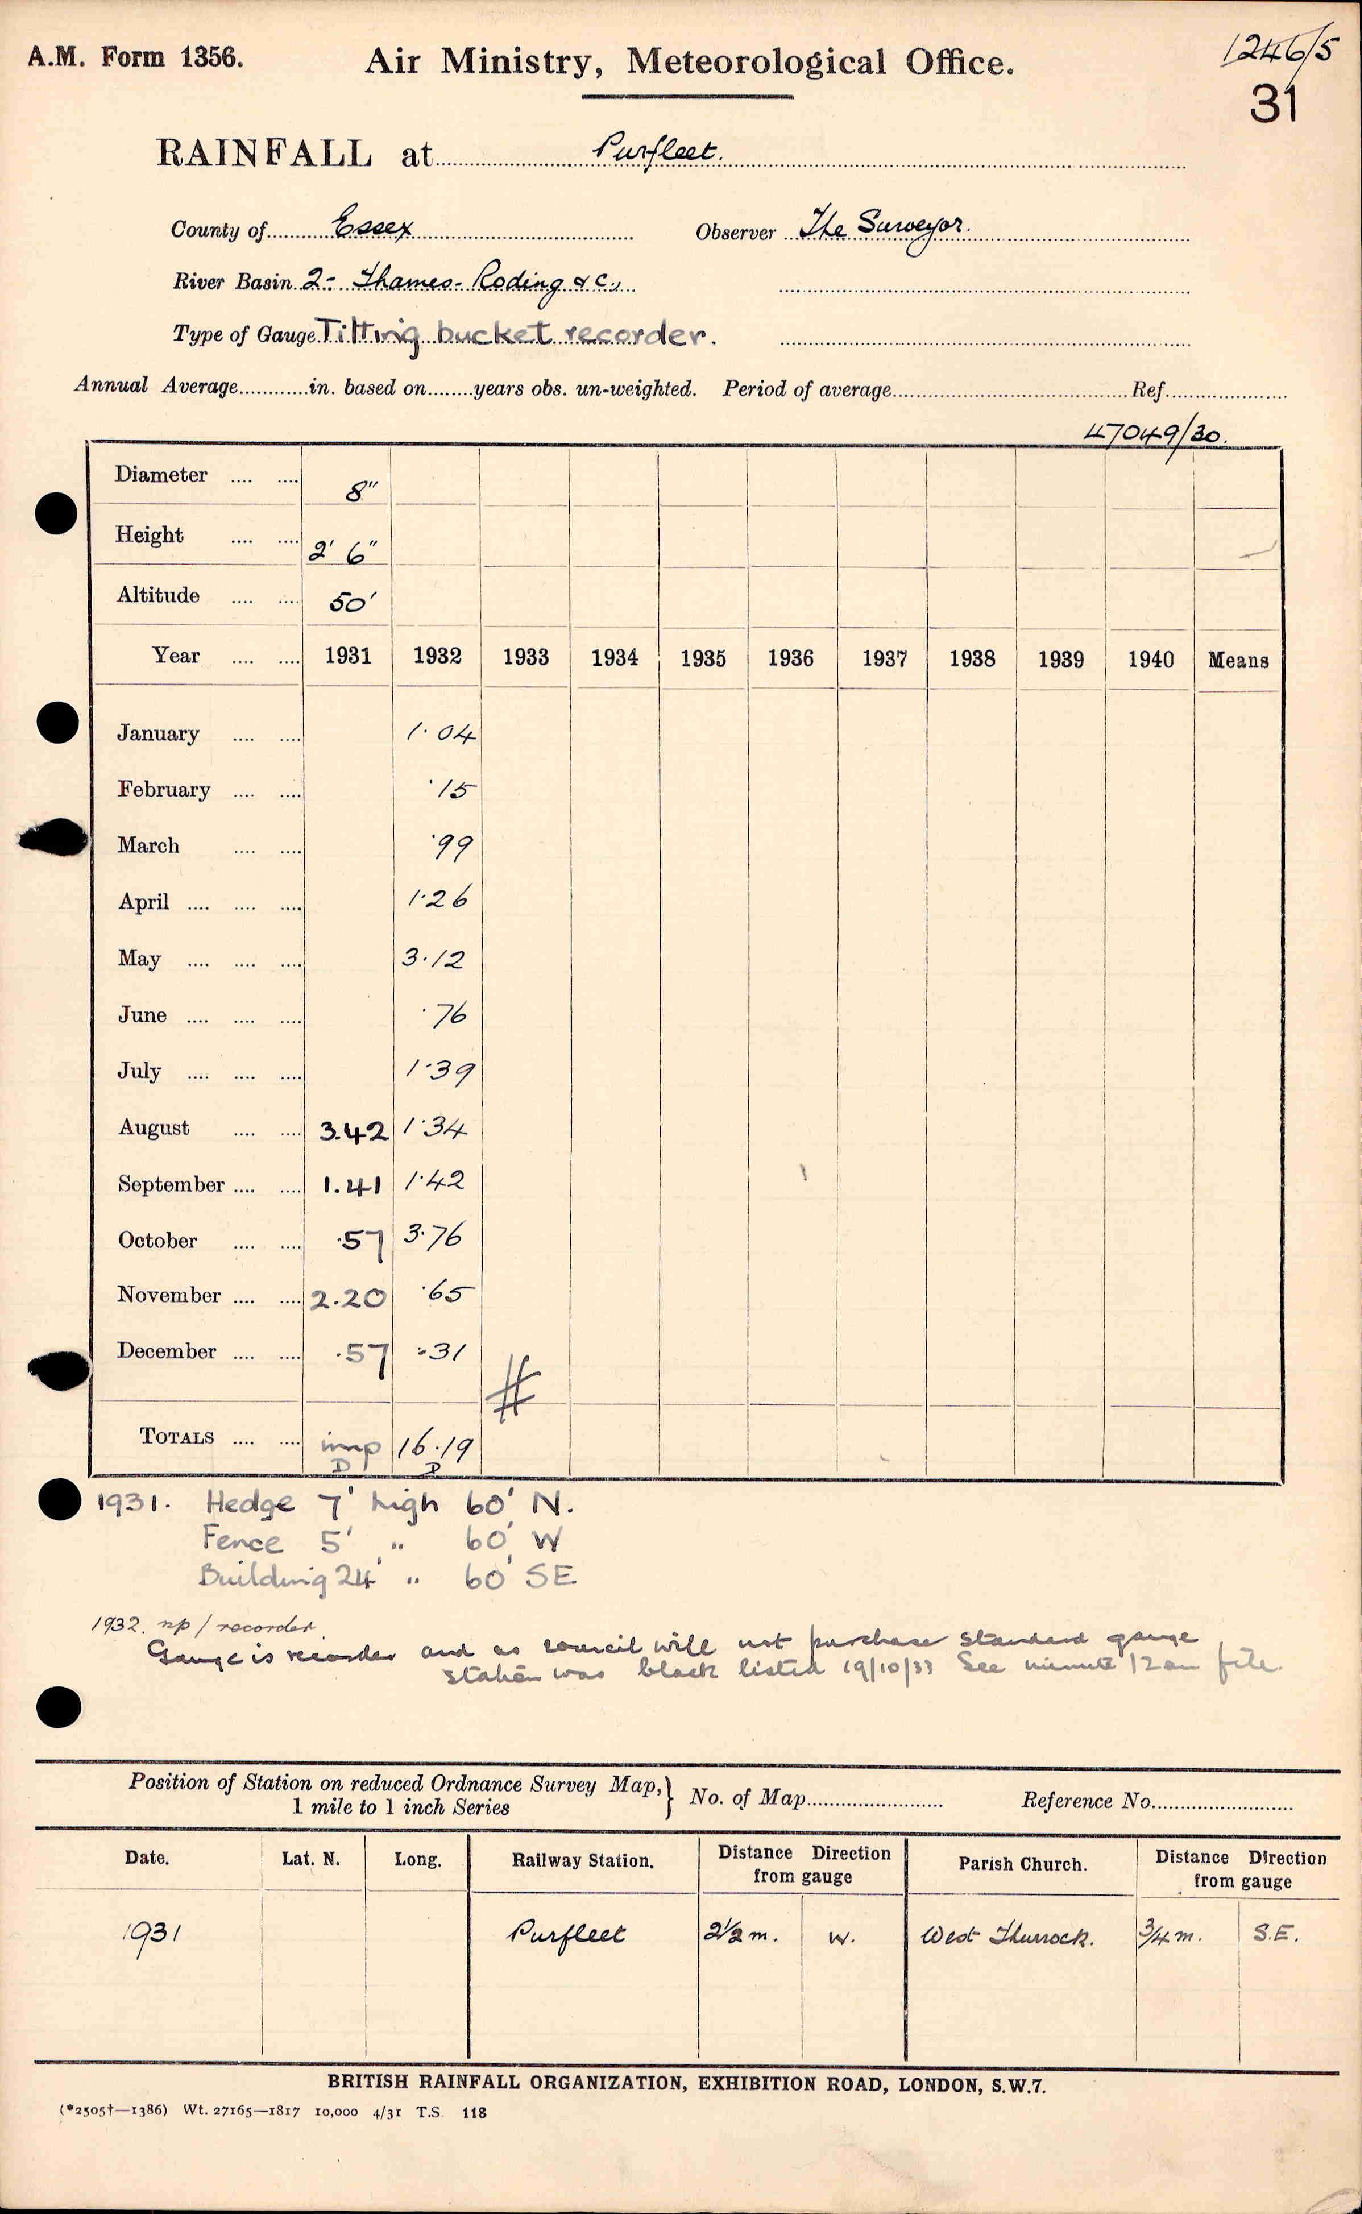 A.M. Form 1356.
Air Ministry, Meteorological Office.
1246/5
31
RAINFALL at Purfleet.
County of Essex Observer The Surveyor.
River Basin 2- Thames-Roding & c.,
Type of Gauge Tilting bucket recorder.
Annual Average............in. based on........years obs. un-weighted. Period of average........................................Ref.....................
47049/30.
Diameter .... .... 8"
Height .... .... 2' 6"
Altitude .... .... 50'
Year .... .... 1931 1932 1933 1934 1935 1936 1937 1938 1939 1940 Means
January .... .... 1.04
February .... .... .15
March .... .... .99
April .... .... .... 1.26
May .... .... .... 3.12
June .... .... .... .76
July .... .... .... 1.39
August .... .... 3.42 1.34
September .... .... 1.41 1.42
October .... .... .57 3.76
November .... .... 2.20 .65
December .... .... .57 .31
#
TOTALS .... .... imp 16.19
D D
1931. Hedge 7' high 60' N.
Fence 5' " 60' W
Building 24' " 60' SE
1932. np / recorder.
Gauge is recorder and as council will not purchase standard gauge
station was black listed 19/10/33 See minute 12 on file.
Position of Station on reduced Ordnance Survey Map, } No. of Map........................ Reference No.........................
1 mile to 1 inch Series
Date. Lat. N. Long. Railway Station. Distance Direction from gauge Parish Church. Distance Direction from gauge
1931 Purfleet 2½ m. W. West Thurrock. ¾ m. S.E.
BRITISH RAINFALL ORGANIZATION, EXHIBITION ROAD, LONDON, S.W.7.
(*2505†—1386) Wt. 27165—1817 10,000 4/31 T.S. 118